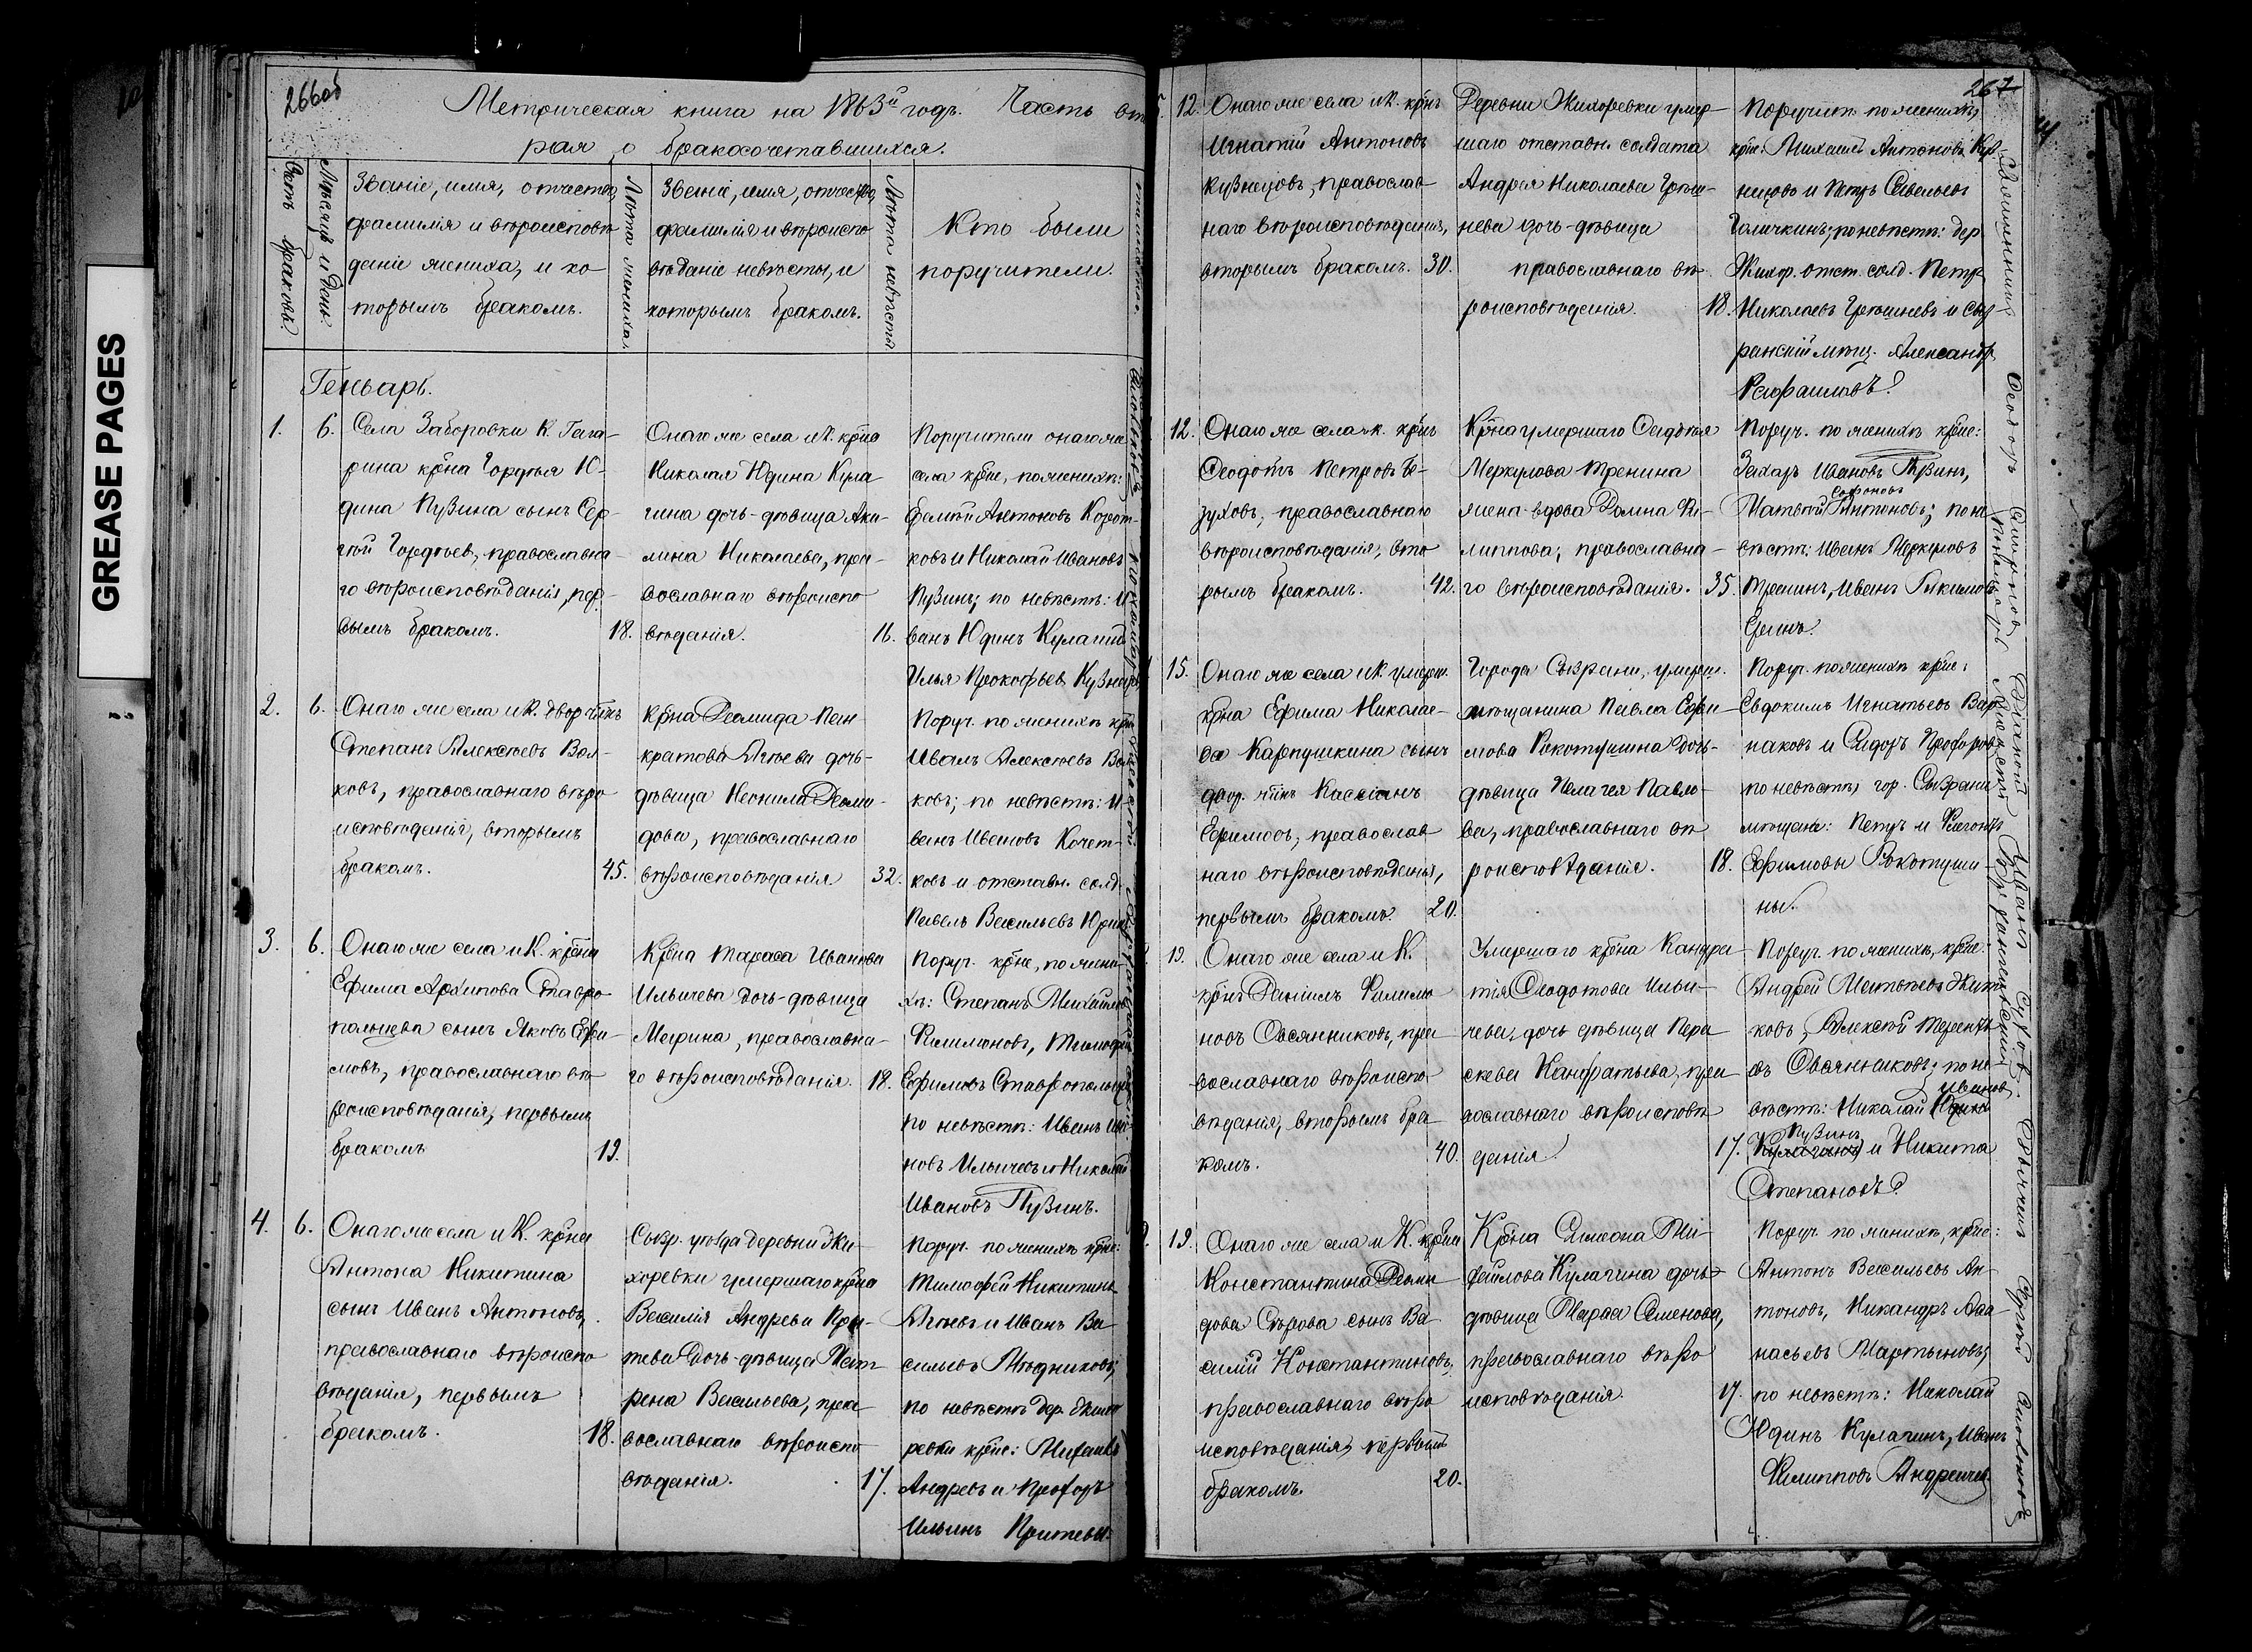 266об
Метрическая книга на 1863й годъ. Часть вто
рая о бракосочетавшихся.
Счетъ браковъ.
Мѣсяцъ и день.
Званіе, имя, отчество,
фамилія и вѣроисповѣ
даніе жениха, и ко
торымъ бракомъ.
Лѣта жениха.
Званіе, имя, отчество,
фамилія и вѣроиспо
вѣданіе невѣсты, и
которымъ бракомъ.
Лѣта невѣсты
Кто были
поручители.
Геньварь.
1. 6.
Села Заборовки К. Гага-
рина крѣна Гордѣя Ю-
дина Пузина сынъ Сер-
гѣй Гордѣевъ, православна-
го вѣроисповѣданія, пер-
вымъ бракомъ. 18.
Онаго же села и К. крѣна
Николая Юдина Кула-
гина дочь-дѣвица Аку-
лина Николаева, пра-
вославнаго вѣроиспо
вѣданія. 16.
Поручители онаго же
села крѣне, по женихѣ:
Антоновъ Корот-
ковъ и Николай Ивановъ
Пузинъ; по невѣстѣ: И
ванъ Юдинъ Кулагинъ
Илья Прокофьевъ Кузнецовъ
2. 6.
Онаго же села и К. двор. чкъ
Степанъ Алексѣевъ Вол-
ковъ, православнаго вѣро
исповѣданія, вторымъ
бракомъ. 45.
Крѣна Деомида Пан
кратова Агѣева дочь-
дѣвица Неонила Деоми-
дова, православнаго
вѣроисповѣданія 32.
Поруч. по женихѣ крѣ
Иванъ Алексѣевъ Вол
ковъ; по невѣстѣ: И
ванъ Ивановъ Кочет-
ковъ и отставн. солд.
Павелъ Васильевъ
3. 6.
Онаго же села и К. крѣна
Ефима Архипова Ставро
польцева сынъ Яковъ Ефи-
мовъ, православнаго вѣ
роисповѣданія, первымъ
бракомъ 19.
Крѣна Тараса Иванова
Ильичева дочь-дѣвица
Марина, православна-
го вѣроисповѣданія. 18.
Поруч. крѣне, по жени-
хѣ: Степанъ Михайловъ
Филимоновъ, Тимофей
Ефимовъ Ставропольцевъ
по невѣстѣ: Иванъ Ива
новъ Ильичевъ и Николай
Ивановъ Пузинъ.
4. 6.
Онаго же села и К. крѣна
Антона Никитина
сынъ Иванъ Антоновъ,
православнаго вѣроиспо
вѣданія, первымъ
бракомъ. 18.
Сызр. уѣзда деревни Жи-
хоревки умершаго крѣна
Василія Андреева При-
тева дочь-дѣвица Мат-
рена Васильева, пра-
вославнаго вѣроиспо
вѣданія. 17.
Поруч. по женихѣ крѣне:
Тимофей Никитинъ
Агѣевъ и Иванъ Ва
сильевъ Мѣдниковъ;
по невѣстѣ дер. Жихо
ревки крѣне: Михаилъ
Андреевъ и Прохоръ
Ильинъ Притевы.
267
12. Онаго же села и К. крѣнъ
Игнатій Антоновъ
Кузнецовъ, православ
наго вѣроисповѣданія,
вторымъ бракомъ. 30.
Деревни Жихоревки умер-
шаго отставн. солдата
Андрея Николаева Грѣш-
нева дочь-дѣвица
православнаго вѣ
роисповѣданія. 18.
Поручит. по женихѣ,
крѣне: Михаилъ Антоновъ Куз
нецовъ и Петръ Савельевъ
Галичкинъ; по невѣстѣ: дер.
Жихор. отст. солд. Петръ
Николаевъ Грѣшневъ и Сыз-
ранскій мѣщ. Александръ
Рафаиловъ.
12. Онаго же села и К. крѣнъ
Ѳеодотъ Петровъ Бе-
зуховъ, православнаго
вѣроисповѣданія, вто
рымъ бракомъ. 42.
Крѣна умершаго Авдѣя
Меркулова Тренина
жена-вдова Домна Фи-
липпова, православна-
го вѣроисповѣданія. 35.
Поруч. по женихѣ крѣне:
Захаръ Ивановъ Пузинъ,
Сафоновъ
Матвѣй Антоновъ; по не
вѣстѣ: Иванъ Меркуловъ
Тренинъ, Иванъ Гакимовъ
15. Онаго же села и К. умерш.
крѣна Ефима Николае-
ва Карпушкина сынъ
двор. чкъ Кассіанъ
Ефимовъ, православ
наго вѣроисповѣданія,
первымъ бракомъ. 20.
Города Сызрани, умерш.
мѣщанина Павла Ефи-
мова Рокотушина дочь-
дѣвица Пелагея Павло-
ва, православнаго вѣ
роисповѣданія. 18.
Поруч. по женихѣ крѣне:
Евдокимъ Игнатьевъ Вар
наковъ и Сидоръ Прохоровъ
по невѣстѣ гор. Сызрани
мѣщане: Петръ и Флегонтъ
Ефимовы Рокотуши-
ны.
19. Онаго же села и К.
крѣнъ Даніилъ Филимо
новъ Овсянниковъ, пра
вославнаго вѣроиспо
вѣданія, вторымъ бра
комъ. 40.
Умершаго крѣна Кандра
тія Ѳеодотова Ильи-
чева, дочь дѣвица Пара
скева Кандратьева, пра
вославнаго вѣроисповѣ
данія. 17.
Поруч. по женихѣ, крѣне:
Андрей Матвѣевъ Жит
ковъ, Алексѣй Терентье
въ Овсянниковъ; по не
Ивановъ
вѣстѣ: Николай Юдинъ
Пузинъ
Кулагинъ и Никита
Степановъ.
19. Онаго же села и К. крѣна
Константина Деоми
дова Сѣрова сынъ Ва
силій Константиновъ,
православнаго вѣро
исповѣданія, первымъ
бракомъ. 20.
Крѣна Симеона Ми-
хайлова Кулагина дочь-
дѣвица Марѳа Семенова,
православнаго вѣро
исповѣданія. 17.
Поруч. по женихѣ, крѣне:
Антонъ Васильевъ Ан-
тоновъ, Никандръ Аѳа
насьевъ Мартыновъ;
по невѣстѣ: Николай
Юдинъ Кулагинъ, Иванъ
Филипповъ Андреичевъ
GREASE PAGES